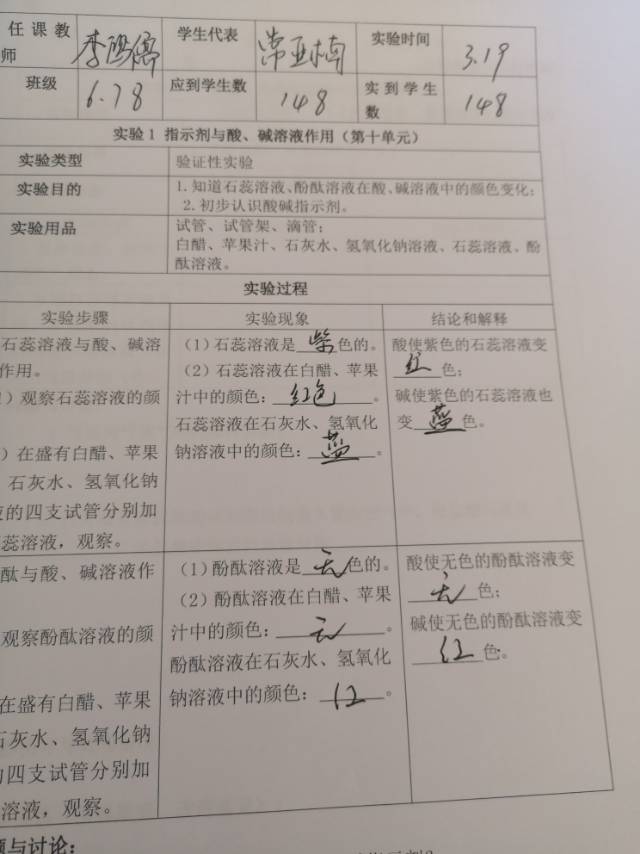 任课教 学生代表 常亚楠 实验时间 3.19
师
班级 6.78 应到学生数 148 实到学生 148
数
实验1 指示剂与酸、碱溶液作用（第十单元）
实验类型 验证性实验
实验目的 1.知道石蕊溶液、酚酞溶液在酸、碱溶液中的颜色变化；
2.初步认识酸碱指示剂。
实验用品 试管、试管架、滴管；
白醋、苹果汁、石灰水、氢氧化钠溶液、石蕊溶液、酚
酞溶液。
实验过程
实验步骤 实验现象 结论和解释
石蕊溶液与酸、碱溶
作用。
）观察石蕊溶液的颜
）在盛有白醋、苹果
石灰水、氢氧化钠
液的四支试管分别加
蕊溶液，观察。
（1）石蕊溶液是紫色的。
（2）石蕊溶液在白醋、苹果
汁中的颜色：红色。
石蕊溶液在石灰水、氢氧化
钠溶液中的颜色：蓝。
酸使紫色的石蕊溶液变
红色；
碱使紫色的石蕊溶液也
变蓝色。
酞与酸、碱溶液作
观察酚酞溶液的颜
在盛有白醋、苹果
石灰水、氢氧化钠
的四支试管分别加
溶液，观察。
（1）酚酞溶液是无色的。
（2）酚酞溶液在白醋、苹果
汁中的颜色：无。
酚酞溶液在石灰水、氢氧化
钠溶液中的颜色：红。
酸使无色的酚酞溶液变
无色；
碱使无色的酚酞溶液变
红色。
题与讨论：